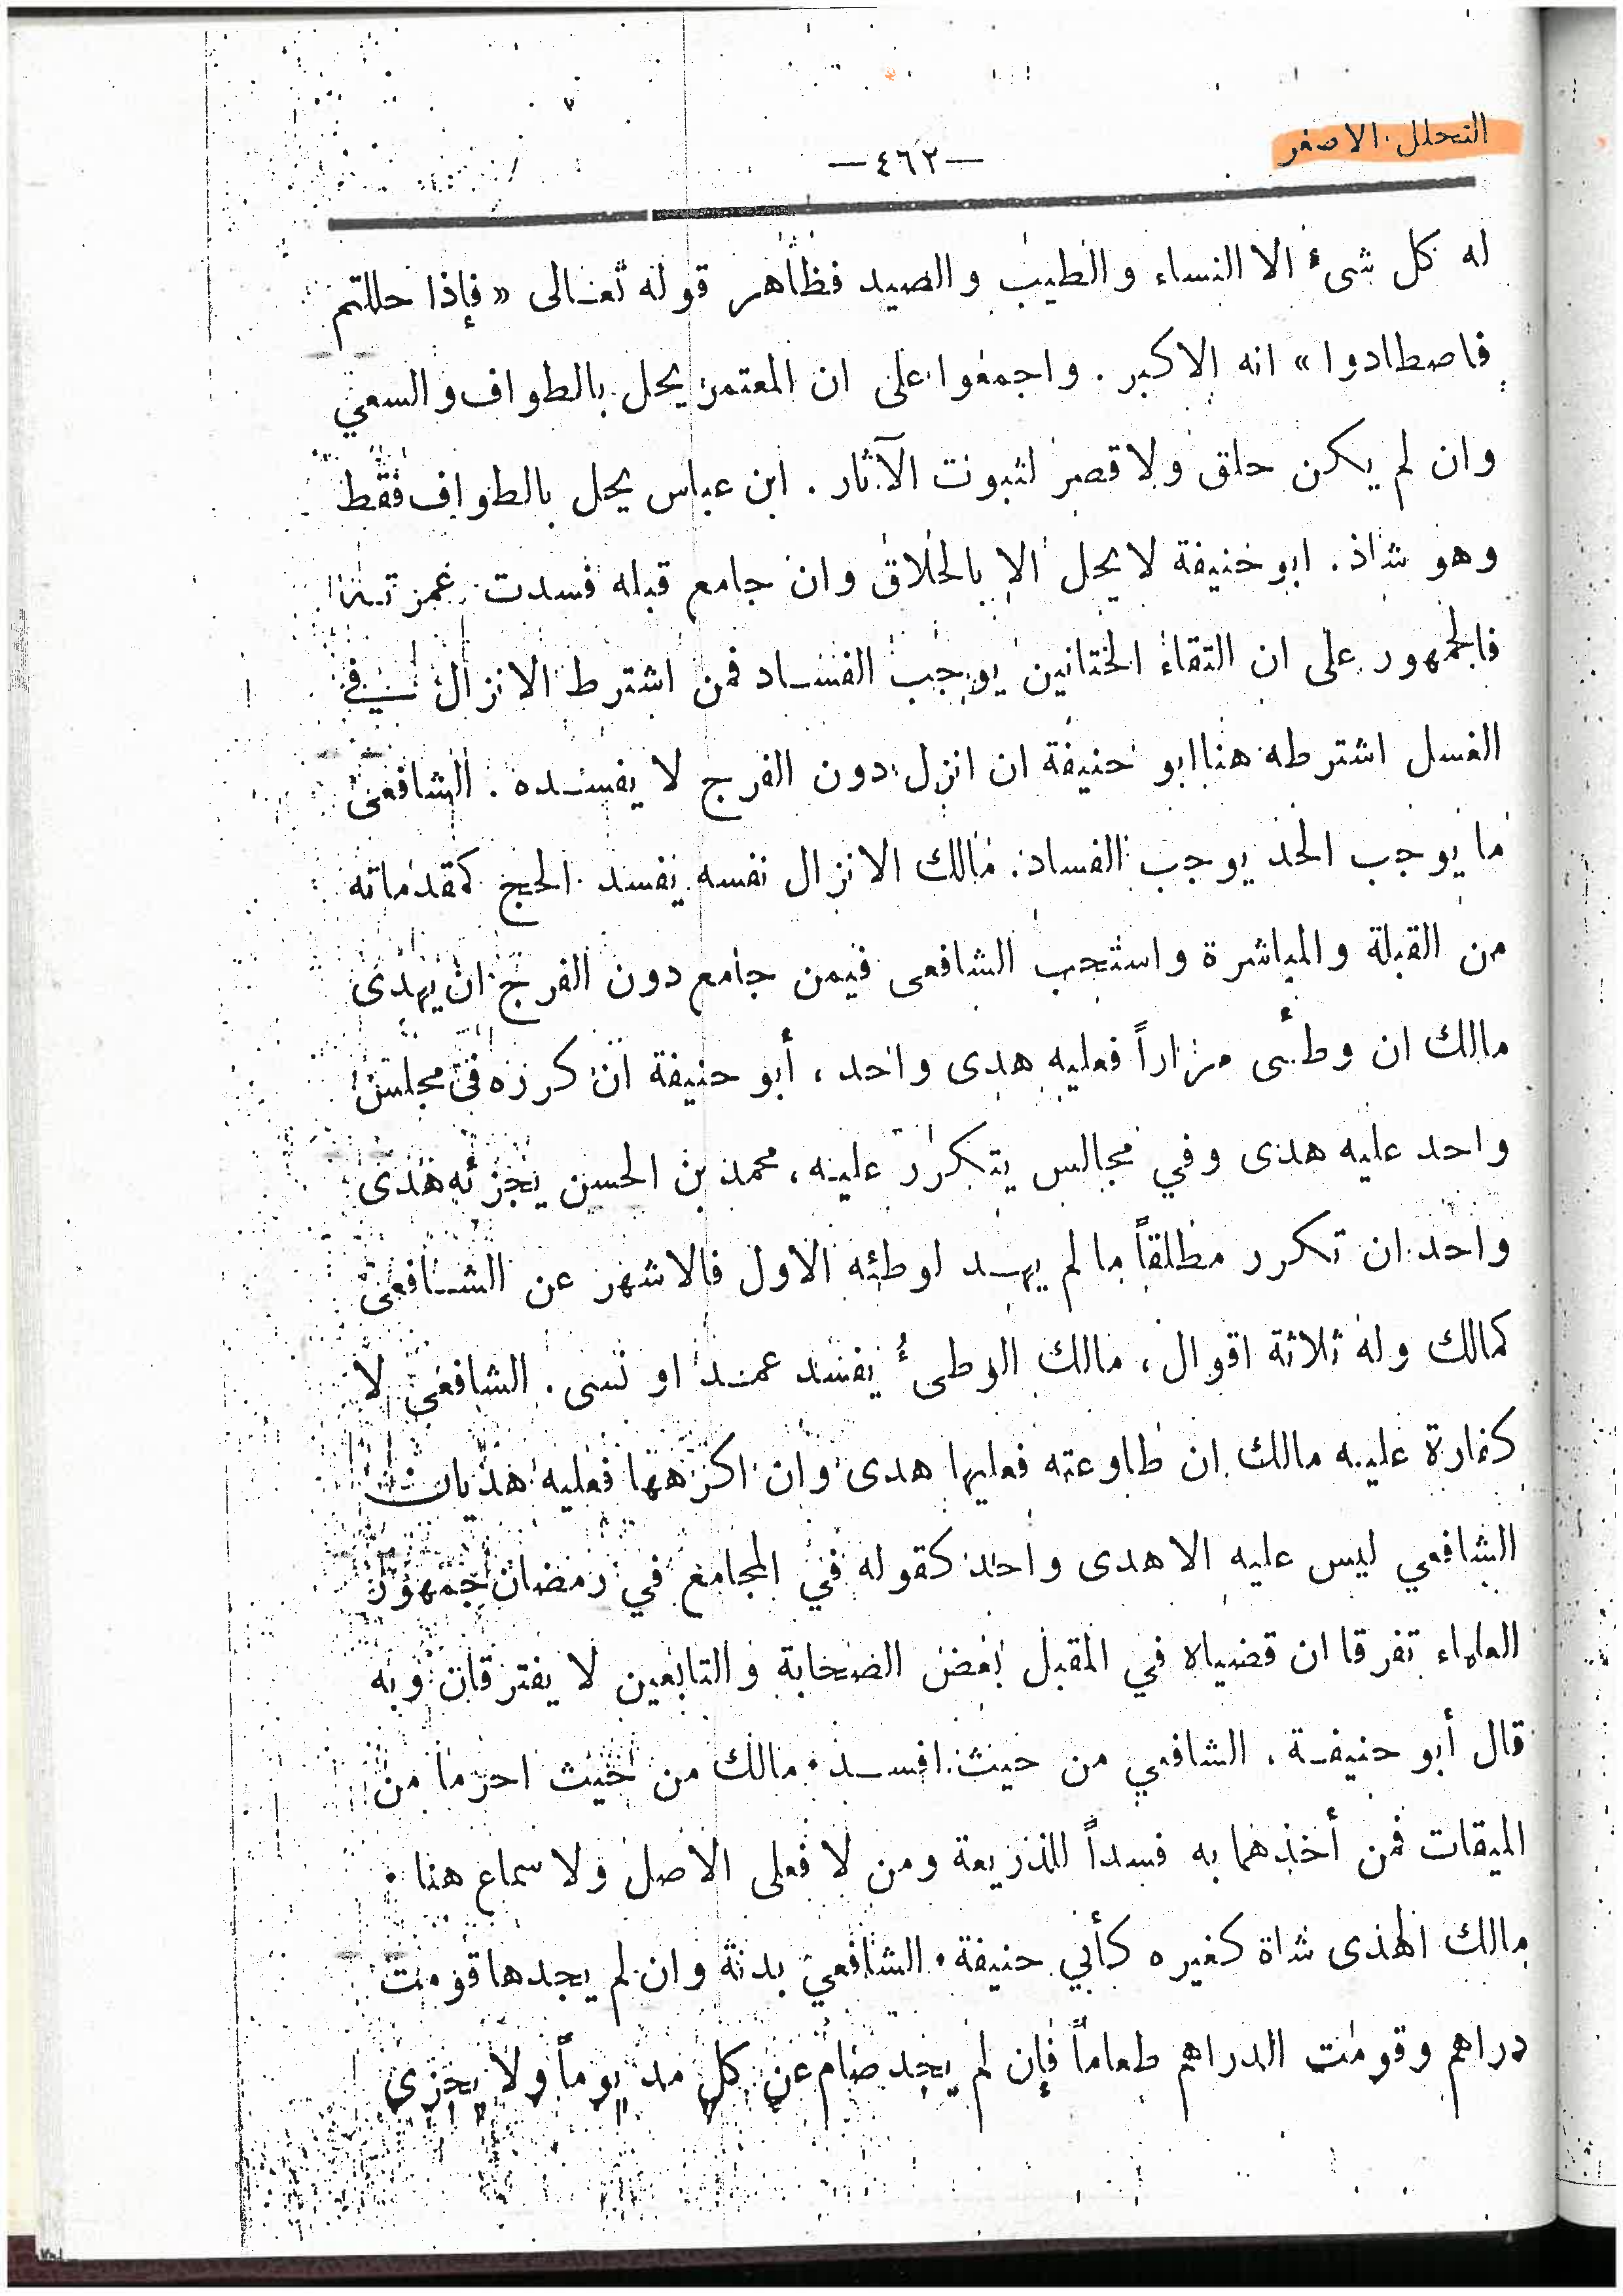 التحلل الاصغر
—٤٦٢—
له كل شىء الا النساء والطيب والصيد فظاهر قوله تعالى « فإذا حللتم
فاصطادوا » انه الاكبر . واجمعوا على ان المعتمر يحل بالطواف والسعي
وان لم يكن حلق ولا قصر لثبوت الآثار . ابن عباس يحل بالطواف فقط
وهو شاذ . ابو حنيفة لا يحل الا بالحلاق وان جامع قبله فسدت عمرته
فالجمهور على ان التقاء الختانين يوجب الفساد فمن اشترط الانزال في
الغسل اشترطه هنا ابو حنيفة ان انزل دون الفرج لا يفسده . الشافعى
ما يوجب الحد يوجب الفساد . مالك الانزال نفسه يفسد الحج كمقدماته
من القبلة والمباشرة واستحب الشافعى فيمن جامع دون الفرج ان يهدى
مالك ان وطىء مراراً فعليه هدى واحد ، أبو حنيفة ان كرره في مجلس
واحد عليه هدى وفي مجالس يتكرر عليه ، محمد بن الحسن يجزئه هدى
واحد ان تكرر مطلقاً ما لم يهد لوطئه الاول فالاشهر عن الشافعى
كمالك وله ثلاثة اقوال ، مالك الوطىء يفسد عمد او نسى . الشافعى لا
كفارة عليه مالك ان طاوعته فعليها هدى وان اكرهها فعليه هديان
الشافعي ليس عليه الا هدى واحد كقوله في المجامع في رمضان جمهور
العلماء تفرقا ان قضياه في المقبل بعض الصحابة والتابعين لا يفترقان وبه
قال أبو حنيفة ، الشافعي من حيث افسد . مالك من حيث احرما من
الميقات فمن أخذهما به فسداً للذريعة ومن لا فعلى الاصل ولا سماع هنا .
مالك الهدى شاة كغيره كأبي حنيفة . الشافعي بدنة وان لم يجدها قومت
دراهم وقومت الدراهم طعاماً فإن لم يجد صام عن كل مد يوماً ولا يجزى